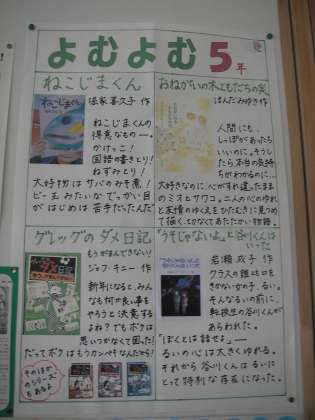 よむよむ 5年
ねこじまくん
ねこじまくん
塚家喜久子 作
ねこじまくんの
得意なもの―。
かけっこ!
国語の書きとり!
ねずみとり!
大好物はサバのみそ煮!
ビー玉みたいなでっかい目
がはじめは苦手だったんだ
はんだみゆき 作
人間にも、
しっぽがあったら
いいのに。そうし
たら本当の気持
ちがわかるのに…
大好きなのに、心がすれ違ったまま
のミオとサワコ。二人の心のゆれ
と友情のゆくえをひたむきに見つめ
て描く、切なくてあたたかい物語。
グレッグのダメ日記
もうがまんできない!
ジェフ・キニー 作
グレッグのダメ日記
新年になると、みん
なも何か良い事を
やろうと決意する
よね?でもボクは
思いつかなくて困った!
だってボクはもうカンペキなんだから!
そのほか
のシリーズも
あるよ
「うそじゃないよ」と谷川くんは
いった
岩瀬成子 作
クラスの誰とも口を
きかない女の子、るい。
そんなるいの前に、
転校生の谷川くんが
あらわれた。
「ぼくとは話せるよ―」
るいの心は大きくゆれる。
それから谷川くんはるいに
とって特別な存在になった。